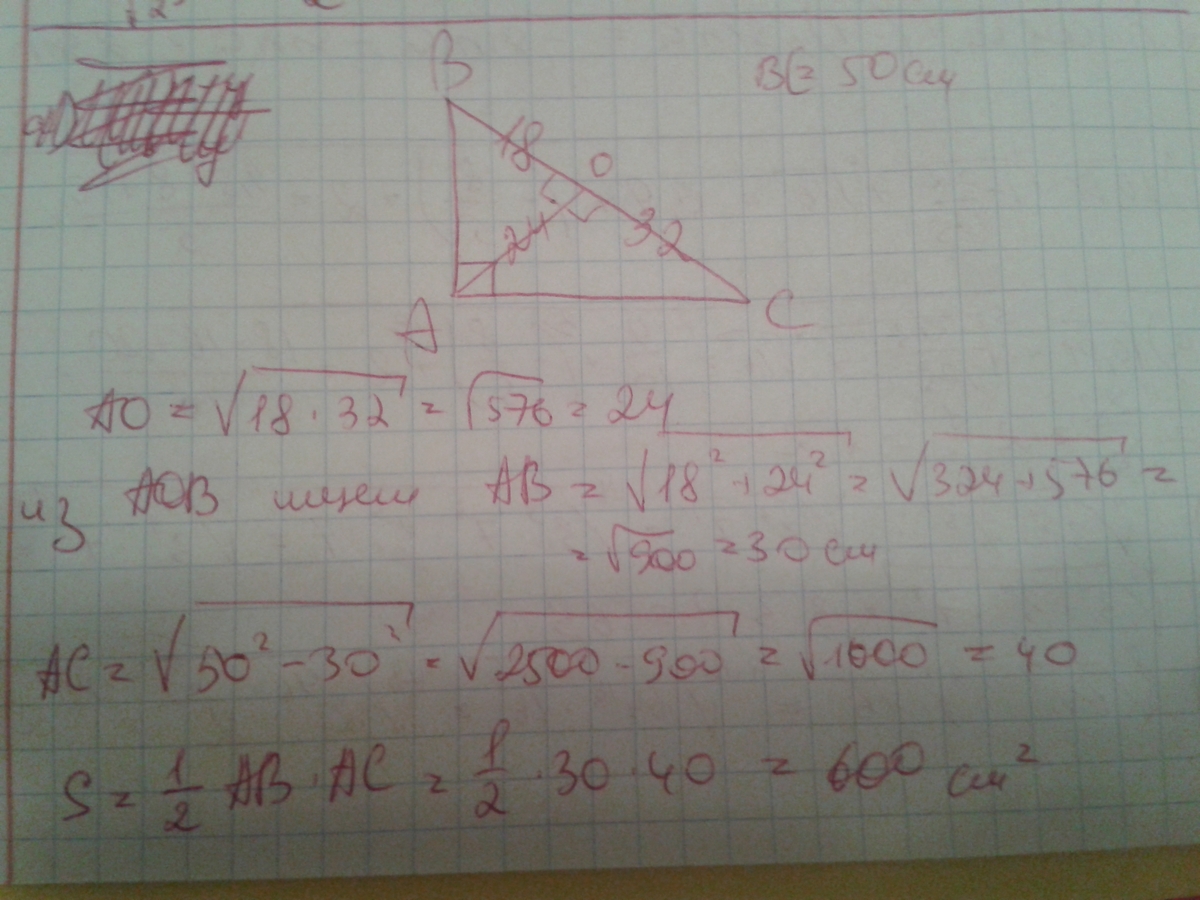 B
BC = 50 см
18
O
24
32
A
C
AO = √18 · 32 = √576 = 24
из AOB ищем AB = √18² + 24² = √324 + 576 =
= √900 = 30 см
AC = √50² - 30² = √2500 - 900 = √1600 = 40
S = 1/2 AB · AC = 1/2 · 30 · 40 = 600 см²